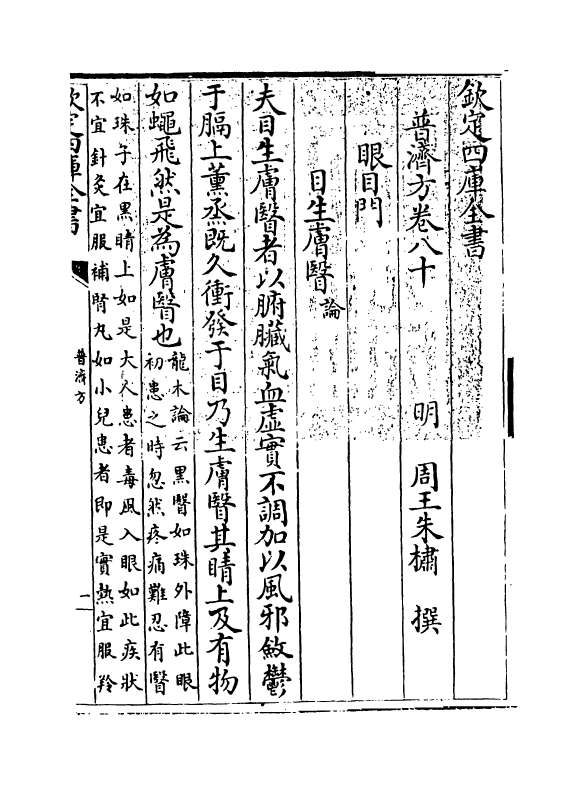 欽定四庫全書
普濟方卷八十
明 周王朱橚 撰
眼目門
目生膚翳論
夫目生膚翳者以腑臟氣血虚實不調加以風邪斂鬱
于膈上薰烝既久衝發于目乃生膚翳其睛上及有物
如蠅飛然是為膚翳也
龍木論云黒翳如珠外障此眼
初患之時忽然疼痛難忍有翳
如珠子在黒睛上如是大人患者毒風入眼如此疾狀
不宜針灸宜服補腎丸如小兒患者即是實熱宜服羚
欽定四庫全書
普濟方
一